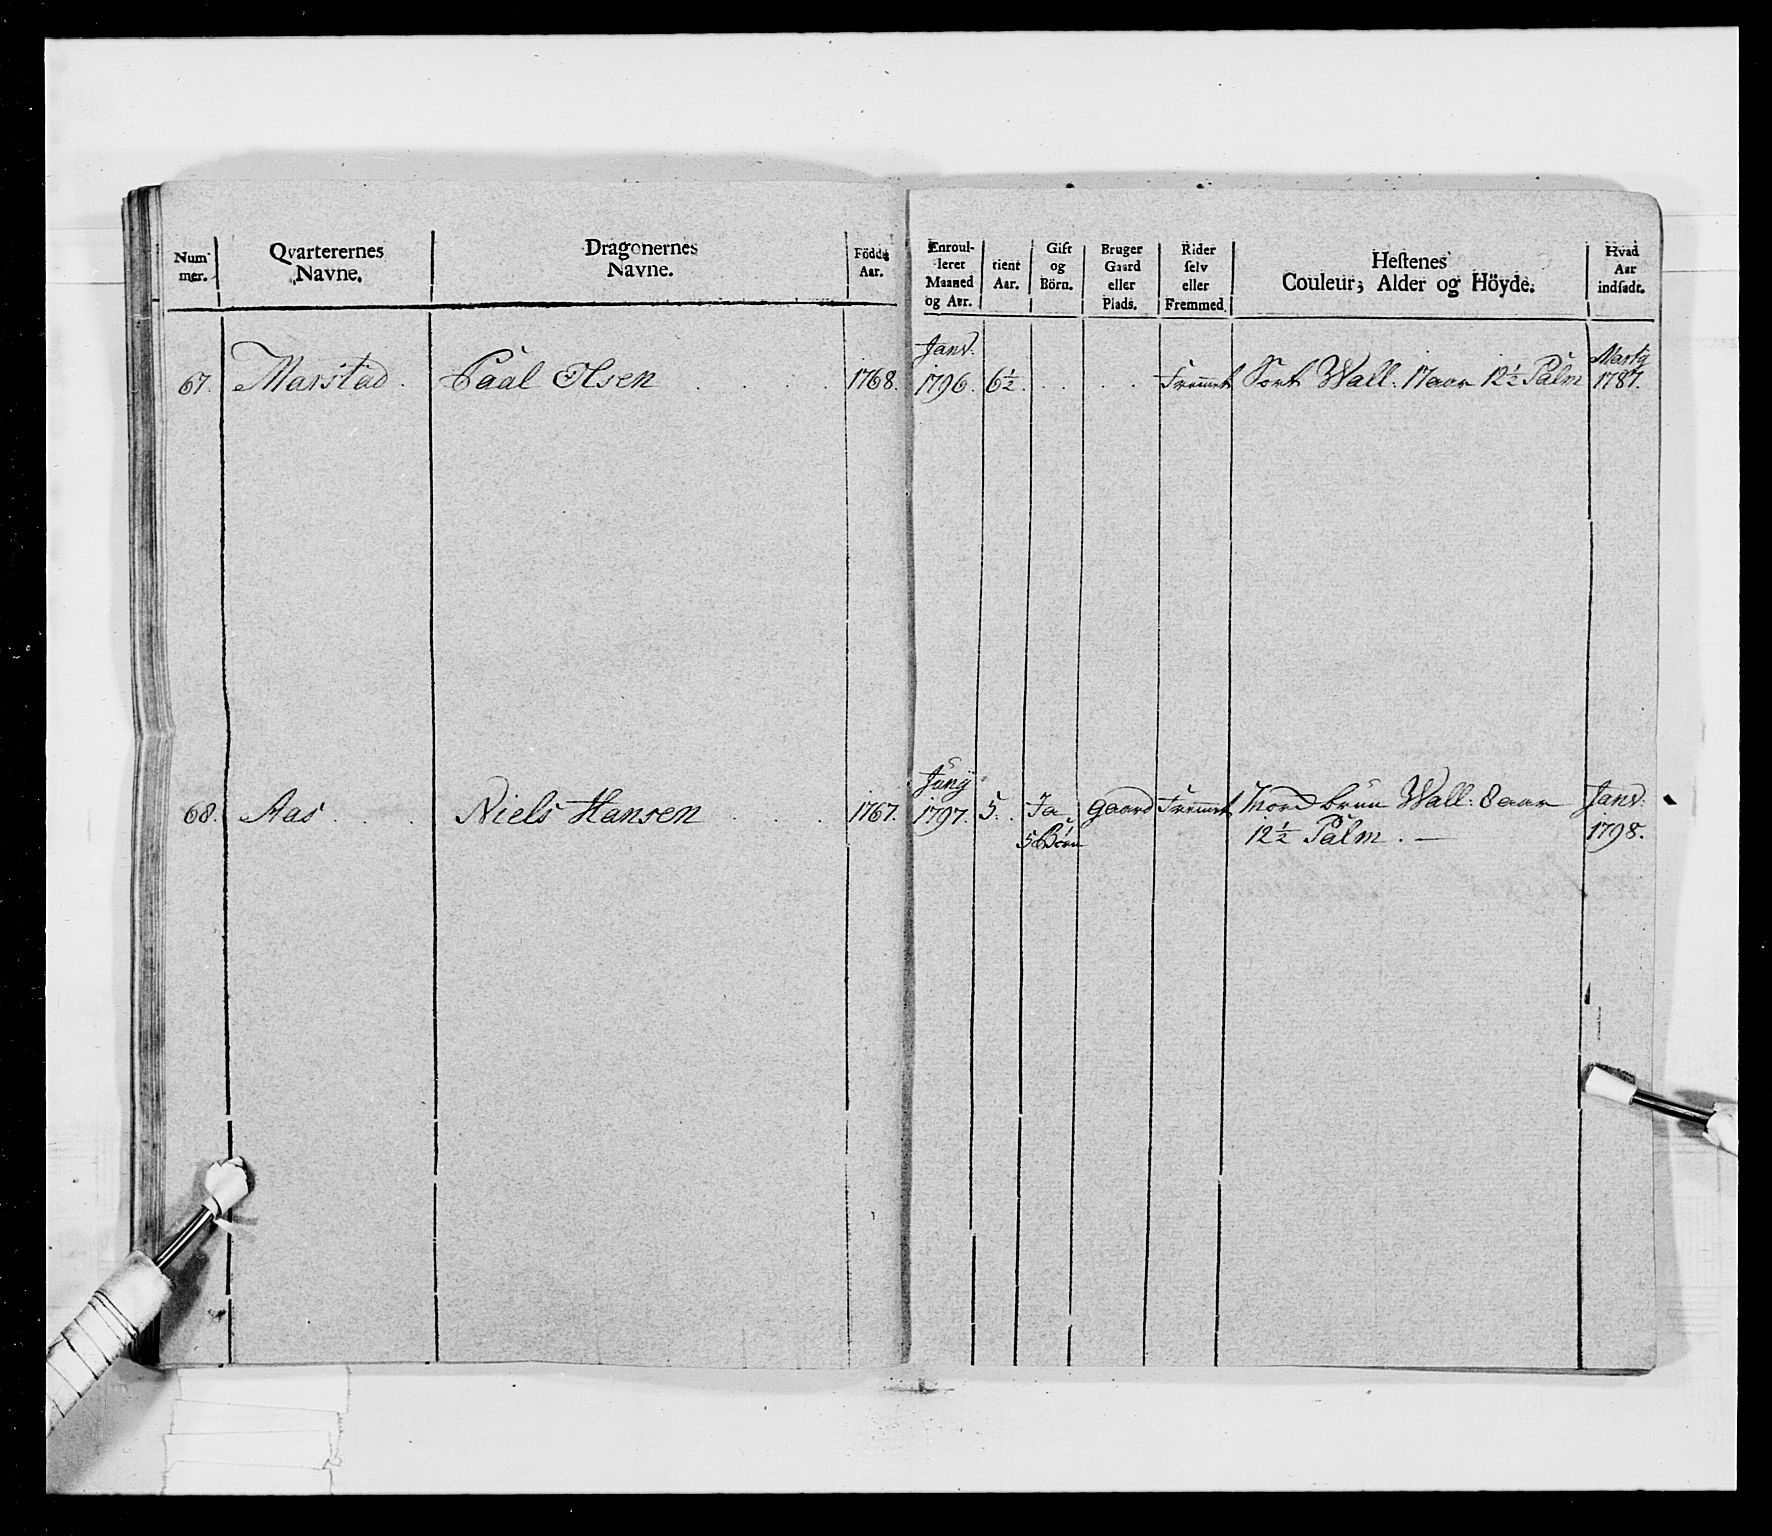 Num-
mer.
Qvarterernes
Navne.
Dragonernes
Navne.
Födde
Aar.
Enroul-
leret
Maaned
og Aar.
tient
Aar.
Gift
og
Börn.
Bruger
Gaard
eller
Plads.
Rider
selv
eller
Fremmed.
Hestenes
Couleur, Alder og Höyde.
Hvad
Aar
indsadt.
67. Marstad . Paal Olsen . . . . 1768. Janv. 1796. 6½. . . . . Fremmet Sort Wall. 17 aar 12½ Palm Marty 1787.
68. Aas . . . Niels Hansen . . . 1767. Juny 1797. 5. . Ja Gaard Fremmet Mord brun Wall: 8 aar Janv:
5 Börn 12½ Palm . — 1798.